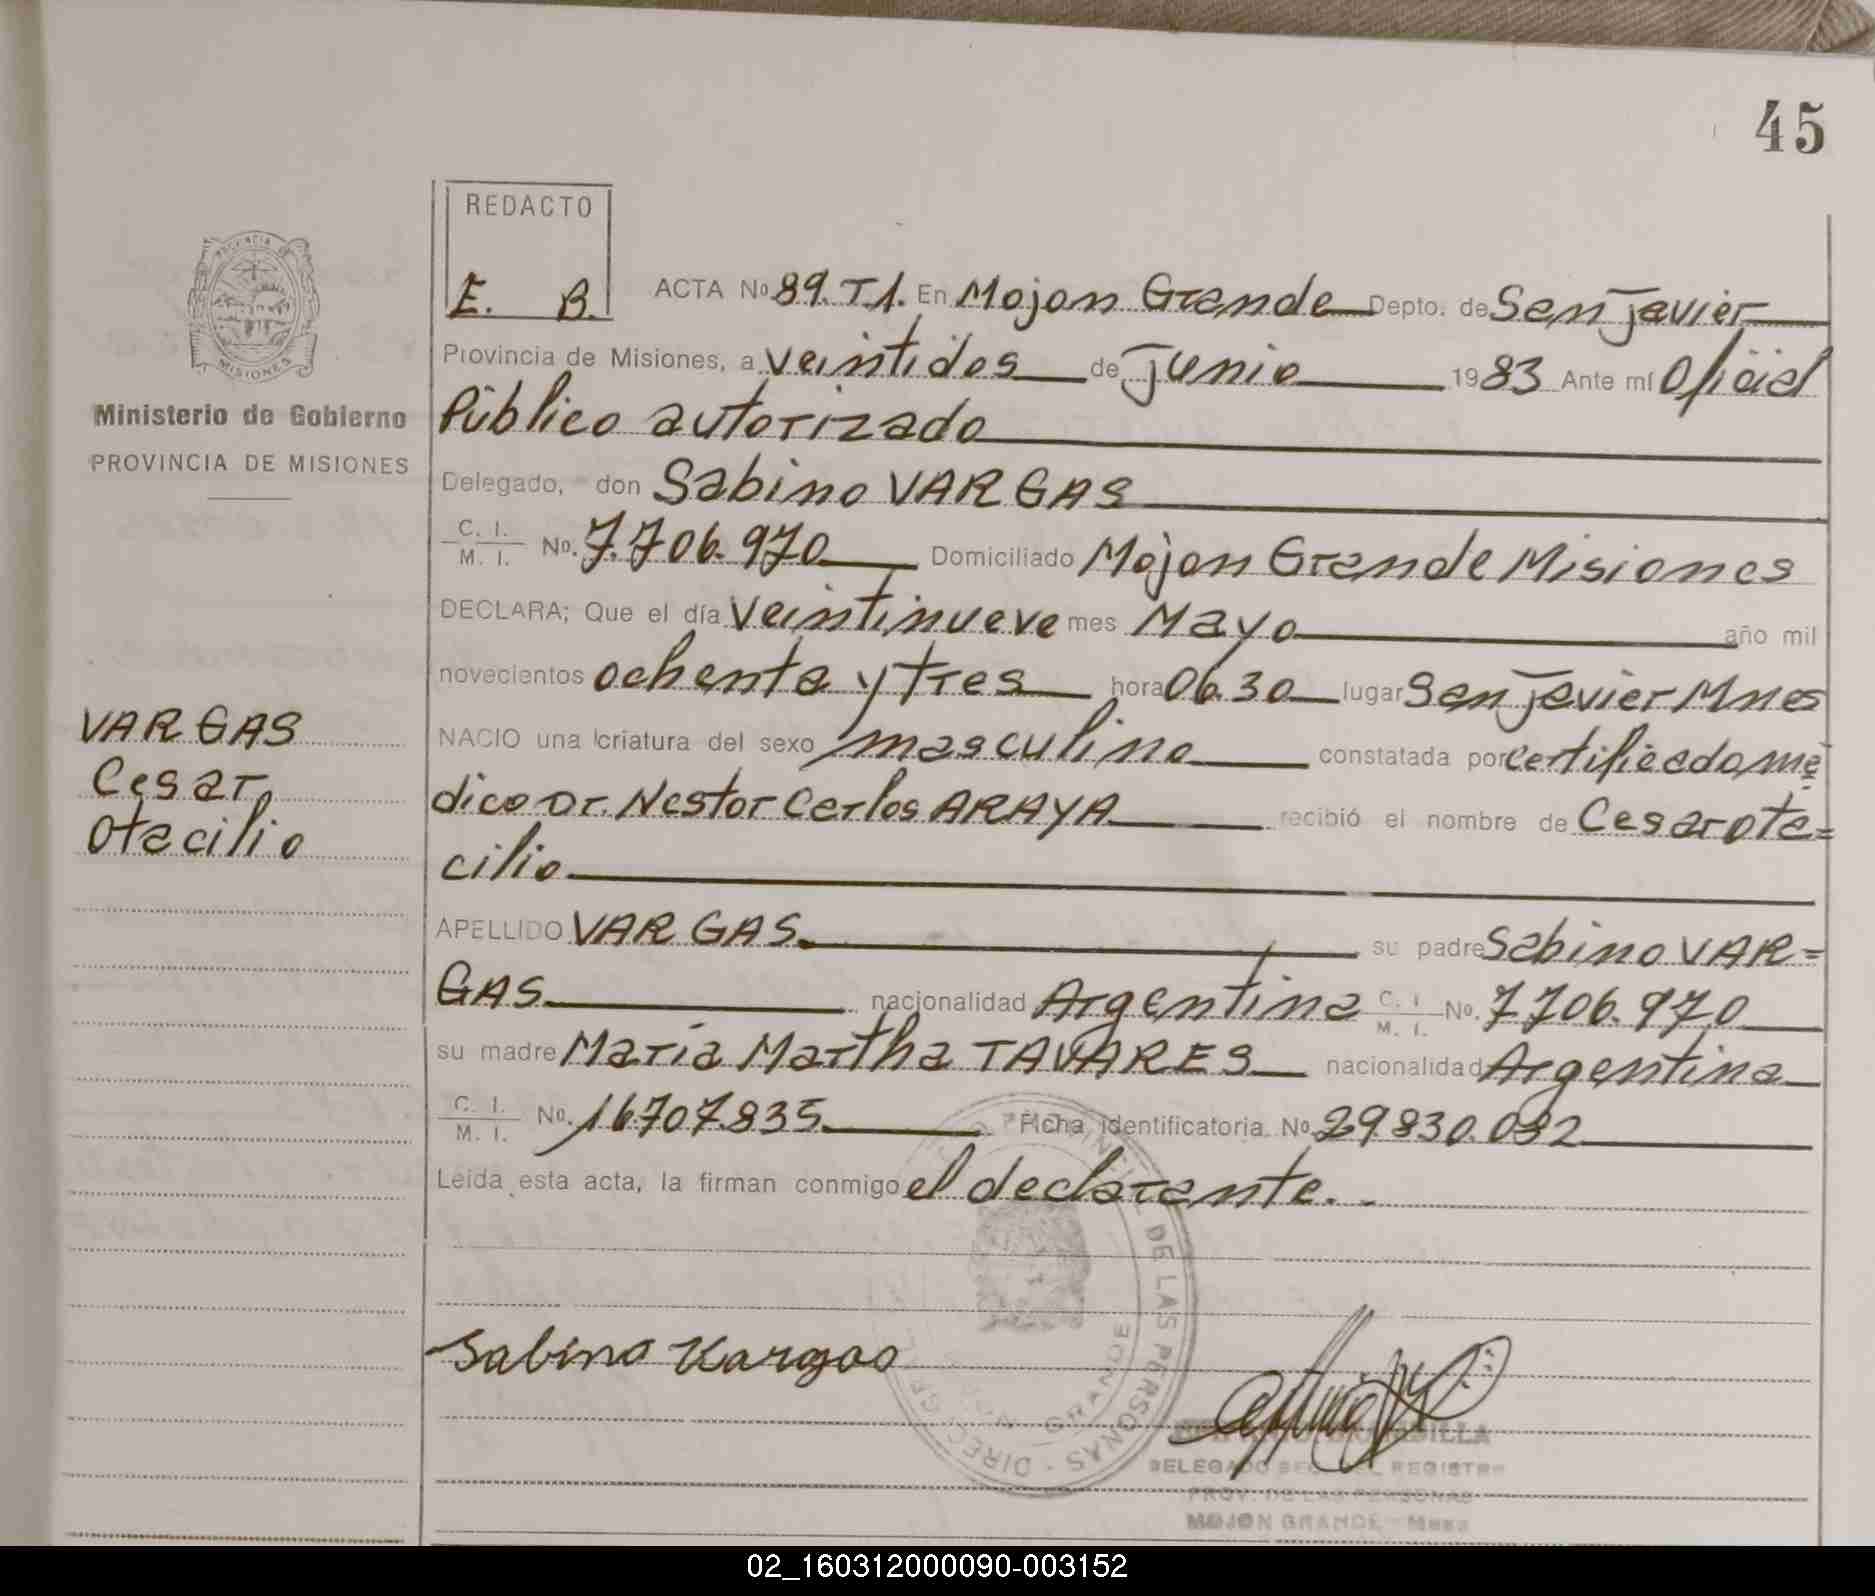 45
REDACTO
E. B.
ACTA No 89.T1. En Mojon Grande Depto. de San Javier
Provincia de Misiones, a veintidos de junio 1983 Ante mí Oficial
Público autorizado
Delegado, don Sabino VARGAS
C. I. / M. I. No. 7.706.970 Domiciliado Mojon Grande Misiones
DECLARA; Que el día veintinueve mes Mayo año mil
novecientos ochenta y tres hora 06.30 lugar San Javier Mnes
NACIO una criatura del sexo masculino constatada por certificado mé
dico Dr. Nestor Carlos ARAYA recibió el nombre de Cesar Ota=
cilio
APELLIDO VARGAS su padre Sabino VAR=
GAS nacionalidad Argentina C. I. / M. I. No. 7706.970
su madre María Martha TAVARES nacionalidad Argentina
C. I. / M. I. No. 16.707.835 Ficha identificatoria No 29.830.032
Leída esta acta, la firman conmigo el declarante..
PROVINCIA DE
MISIONES
Ministerio de Gobierno
PROVINCIA DE MISIONES
VARGAS
Cesar
Otacilio
Sabino Vargas
DE LAS PERSONAS - DIREC GRAL
GRANDE
DELEGADO REGISTRO
PROV. DE LAS PERSONAS
MOJON GRANDE - Mnes
02_160312000090-003152